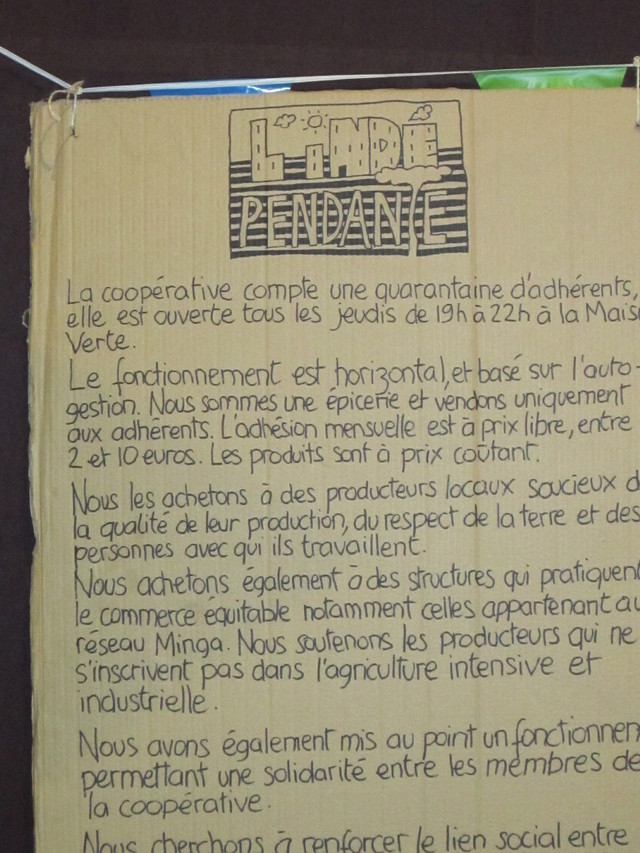 L'INDÉ
PENDANTE
La coopérative compte une quarantaine d'adhérents,
elle est ouverte tous les jeudis de 19h à 22h à la Mais
Verte.
Le fonctionnement est horizontal, et basé sur l'auto-
gestion. Nous sommes une épicerie et vendons uniquement
aux adhérents. L'adhésion mensuelle est à prix libre, entre
2 et 10 euros. Les produits sont à prix coûtant.
Nous les achetons à des producteurs locaux soucieux d
la qualité de leur production, du respect de la terre et des
personnes avec qui ils travaillent.
Nous achetons également à des structures qui pratiquen
le commerce équitable notamment celles appartenant au
réseau Minga. Nous soutenons les producteurs qui ne
s'inscrivent pas dans l'agriculture intensive et
industrielle.
Nous avons également mis au point un fonctionnem
permettant une solidarité entre les membres de
la coopérative.
Nous cherchons à renforcer le lien social entre